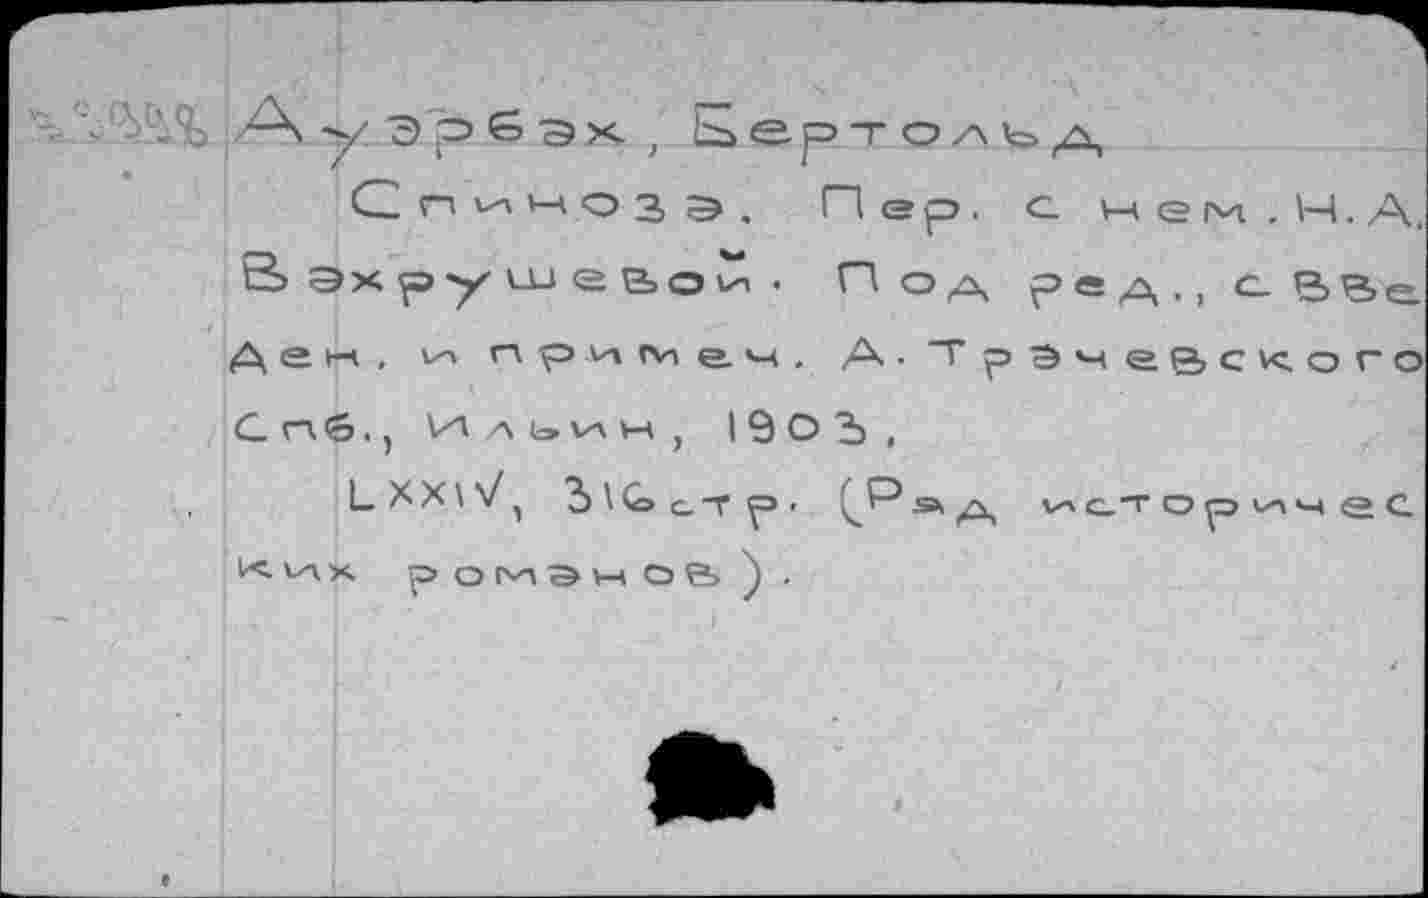 Ауэрбах, Бертольд
Спиноза. Пер. с нем. Н. А.
Вахрушевой. Под ред., с вве
ден. и примеч. А. Трачевского
Спб., Ильин, 1903.
LXXIV, 316 стр. (Ряд историчес
ких романов).